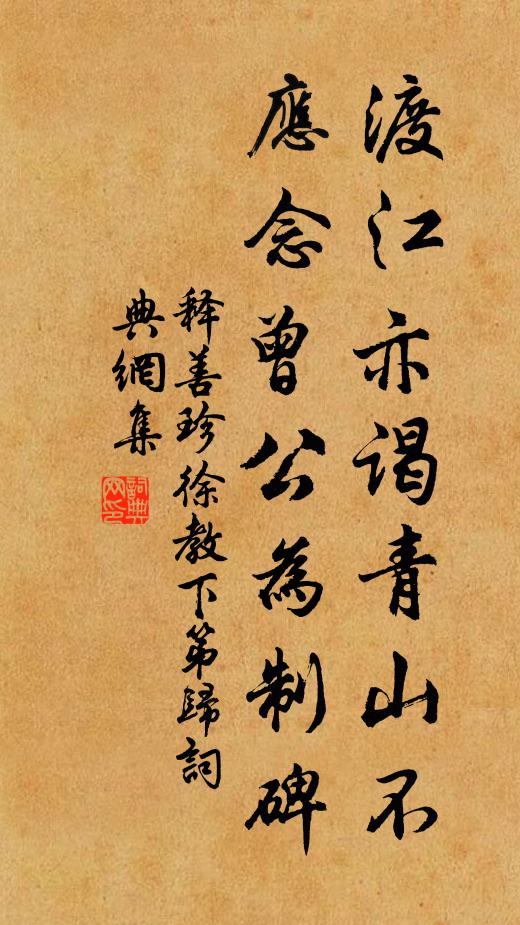 渡江亦谒青山不
應念曾公為制碑
释善珍徐教下第歸詞
典網集
詞典网印